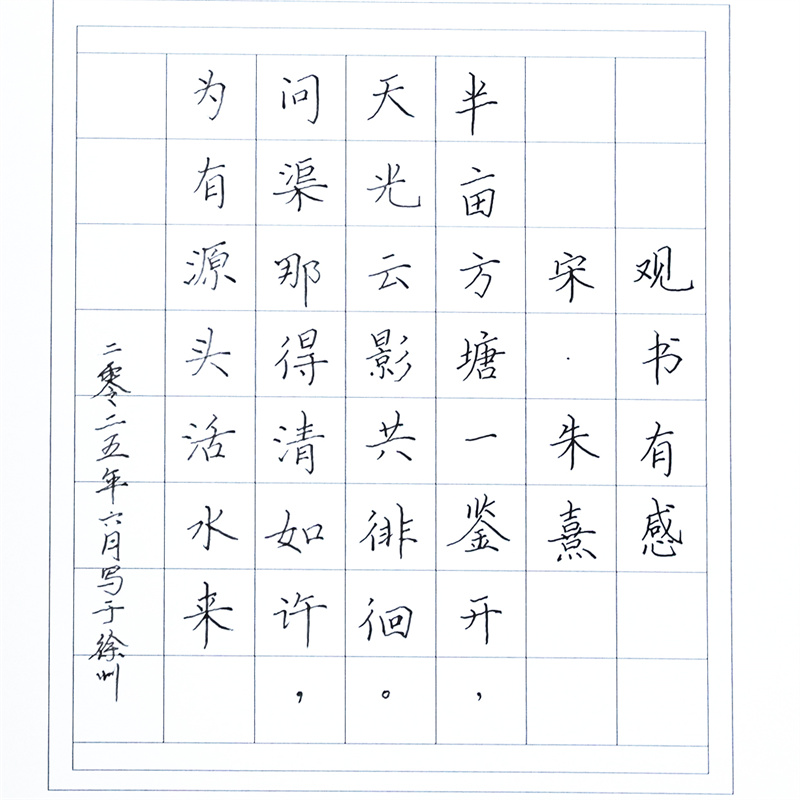 观书有感
宋·朱熹
半亩方塘一鉴开，
天光云影共徘徊。
问渠那得清如许，
为有源头活水来
二零二五年六月写于徐州